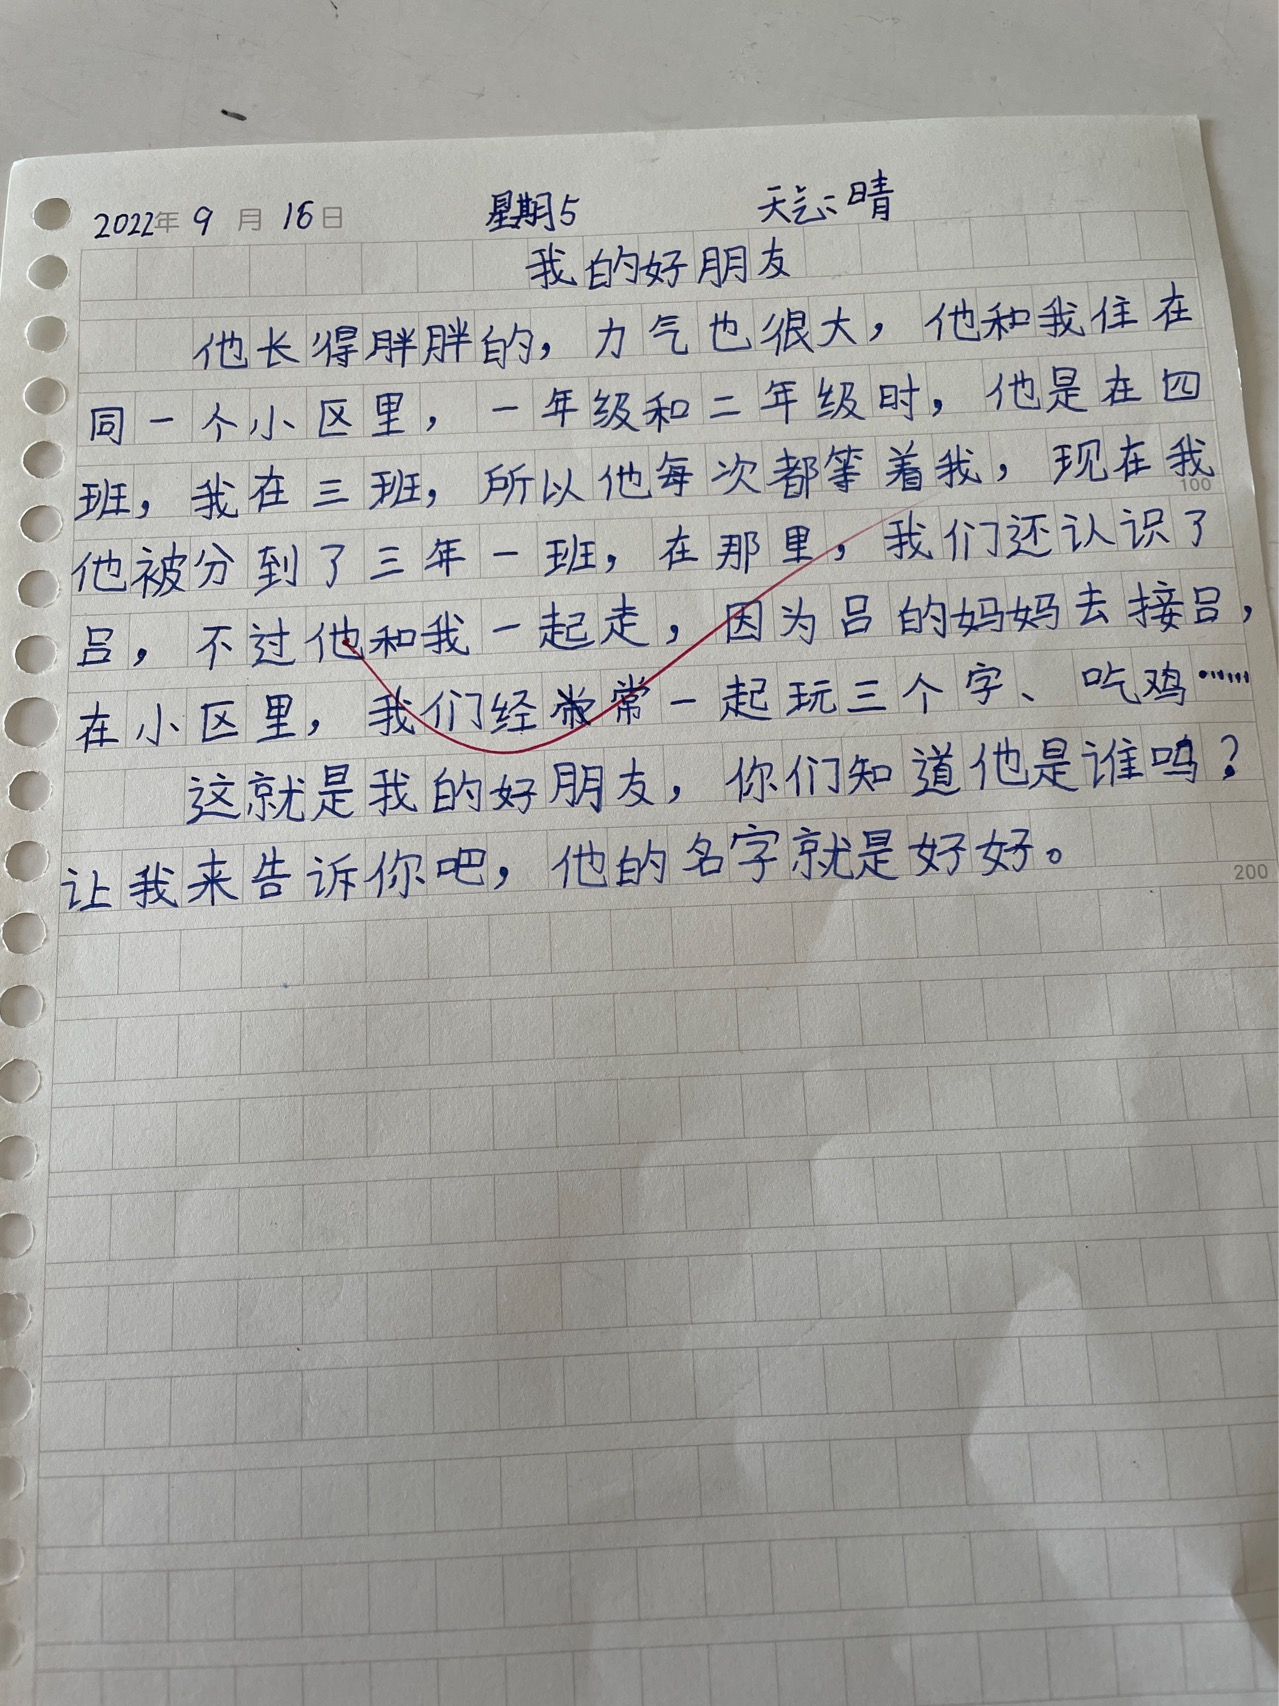 2022年 9 月 16 日 星期5 天气：晴
我的好朋友
他长得胖胖的，力气也很大，他和我住在
同一个小区里，一年级和二年级时，他是在四
班，我在三班，所以他每次都等着我，现在我
100
他被分到了三年一班，在那里，我们还认识了
吕，不过他和我一起走，因为吕的妈妈去接吕，
在小区里，我们经常一起玩三个字、吃鸡……
这就是我的好朋友，你们知道他是谁吗？
让我来告诉你吧，他的名字就是好好。
200